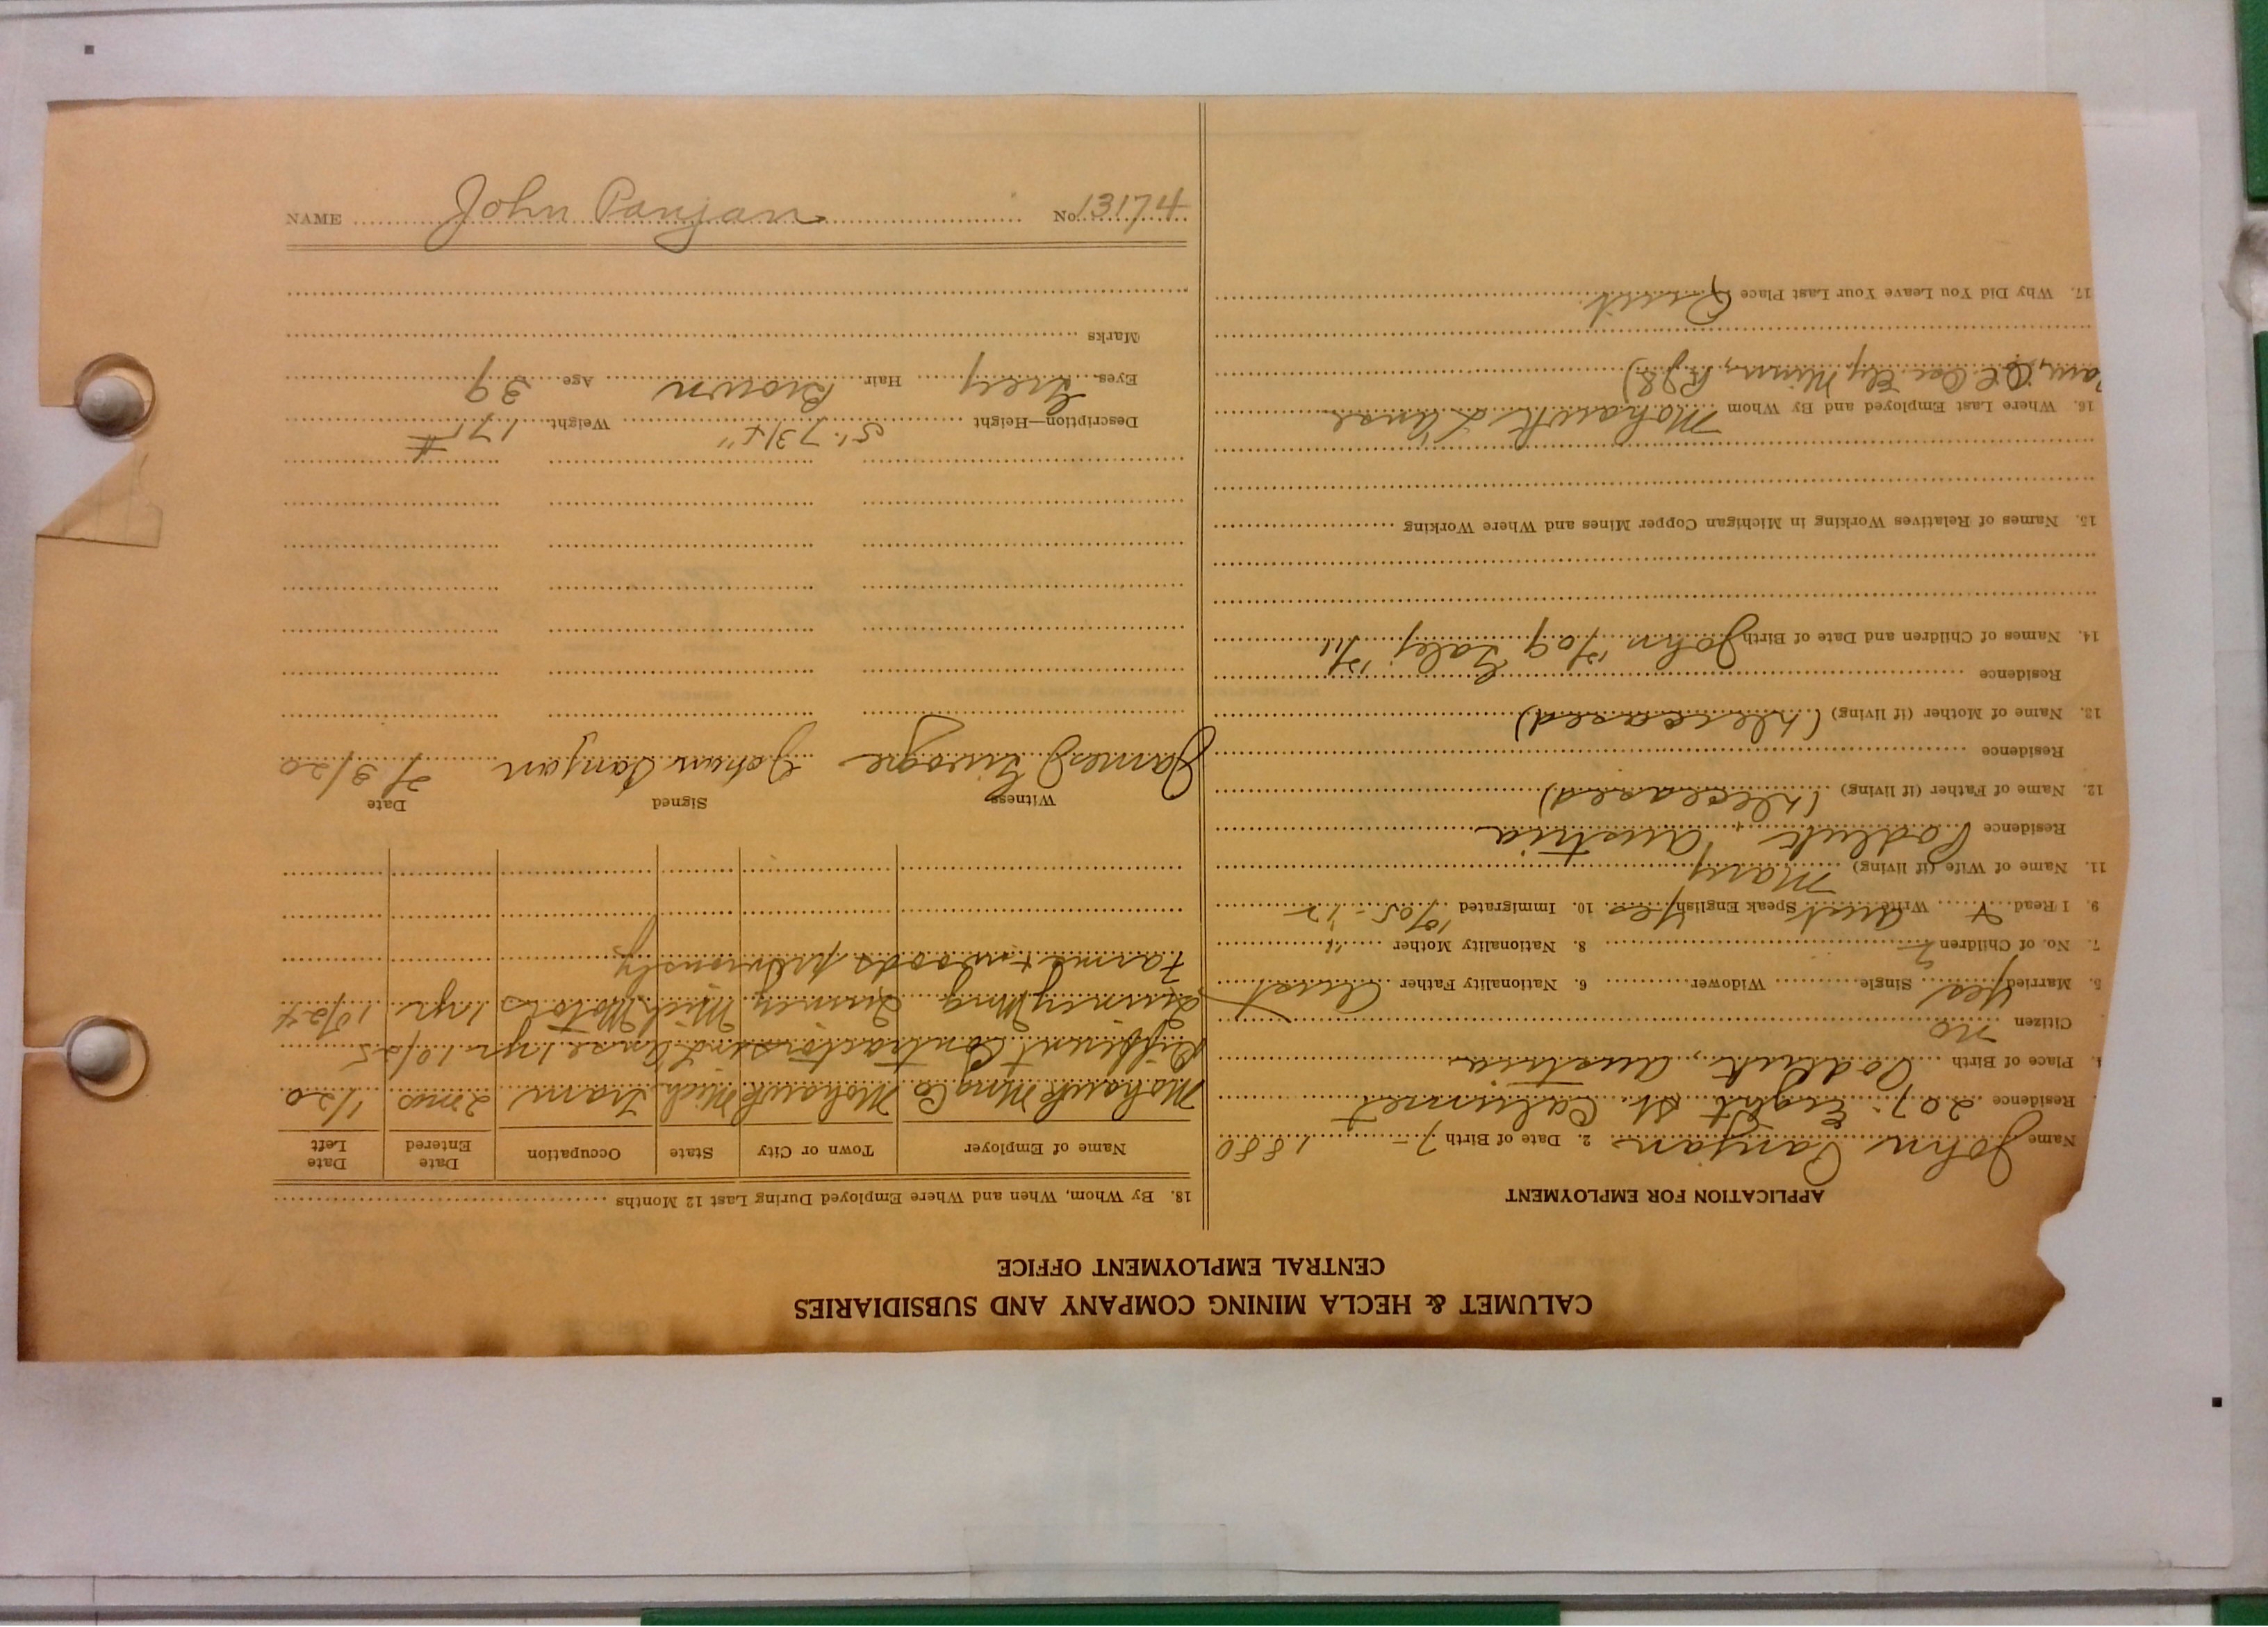 CALUMET & HECLA MINING COMPANY AND SUBSIDIARIES
CENTRAL EMPLOYMENT OFFICE
APPLICATION FOR EMPLOYMENT
Name John Panjan 2. Date of Birth 7 - 1880
Residence 207 - Eight St. Calumet
Place of Birth Podlut, Austria
Citizen no
5. Married yes Single Widower 6. Nationality Father Aust
7. No. of Children 2 8. Nationality Mother "
9. I Read + Write Aust Speak English yes 10. Immigrated 1905 - 12
11. Name of Wife (if living) Mary
Residence Podlut, Austria
12. Name of Father (if living) (deceased)
Residence
13. Name of Mother (if living) (deceased)
Residence
14. Names of Children and Date of Birth John
15. Names of Relatives Working in Michigan Copper Mines and Where Working
16. Where Last Employed and By Whom Mohawk L'anse
Ely Minn,
17. Why Did You Leave Your Last Place Quit
18. By Whom, When and Where Employed During Last 12 Months
Name of Employer Town or City State Occupation Date Entered Date Left
Mohawk Mng Co Mohawk Mich Tram 2 mos 1/20
Different Contractors and L'anse 1 yr.
Quincy Mng Quincy Mich Motors 1 yr
Farm + woods previously
Witness Signed Date
James Johan Panjan 2/3/20
Description—Height 5' 7 3/4" Weight 171 #
Eyes Grey Hair Brown Age 39
Marks
NAME John Panjan No. 13174